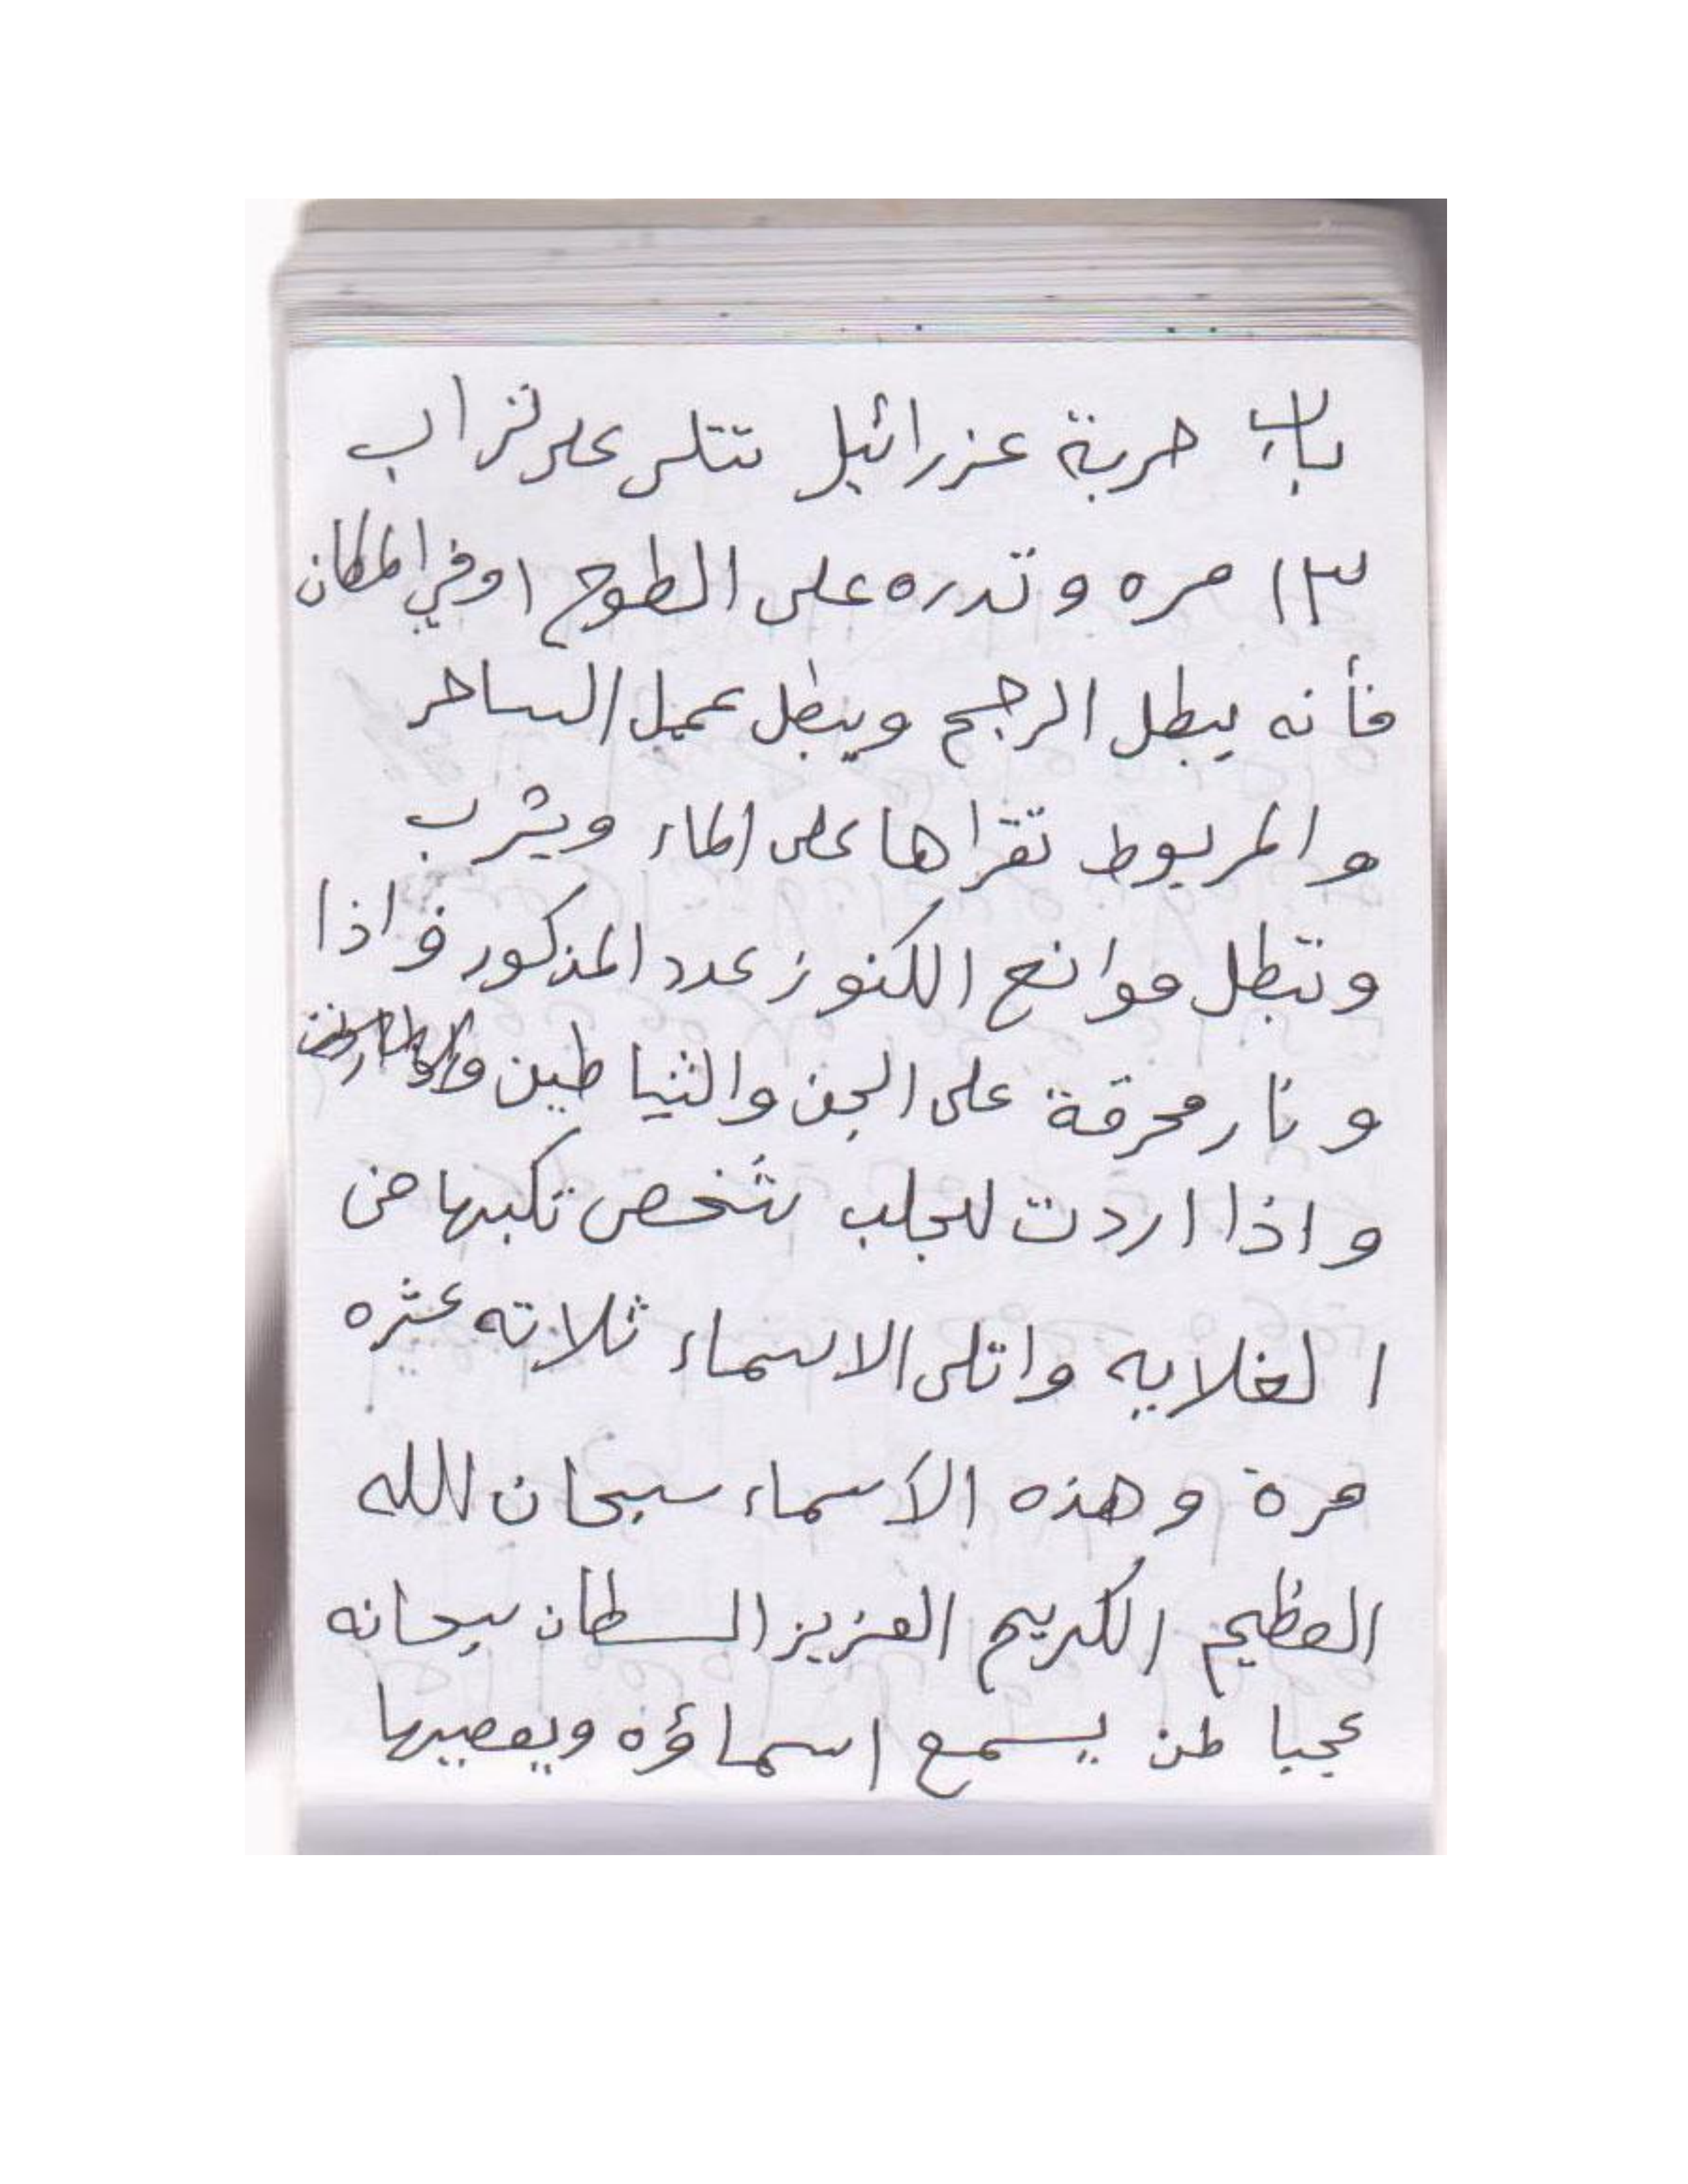 باب حربة عزرائيل تتلى على تراب
١٣ مره وتدره على السطوح اوفي المكان
فأنه يبطل الرجم ويبطل عمل الساحر
والمربوط تقراها على الماء ويشرب
وتبطل موانع الكنوز عدد المذكور فواذا
ونار محرقة على الجن والشياطين
واذا اردت للجلب شخص تكبها من
الغلايه واتلى الاسماء ثلاته عشره
مرة وهذه الأسماء سبحان الله
العظيم الكريم العزيز السطان سبحانه
عجبا لمن يسمع اسماؤه ويعصيها